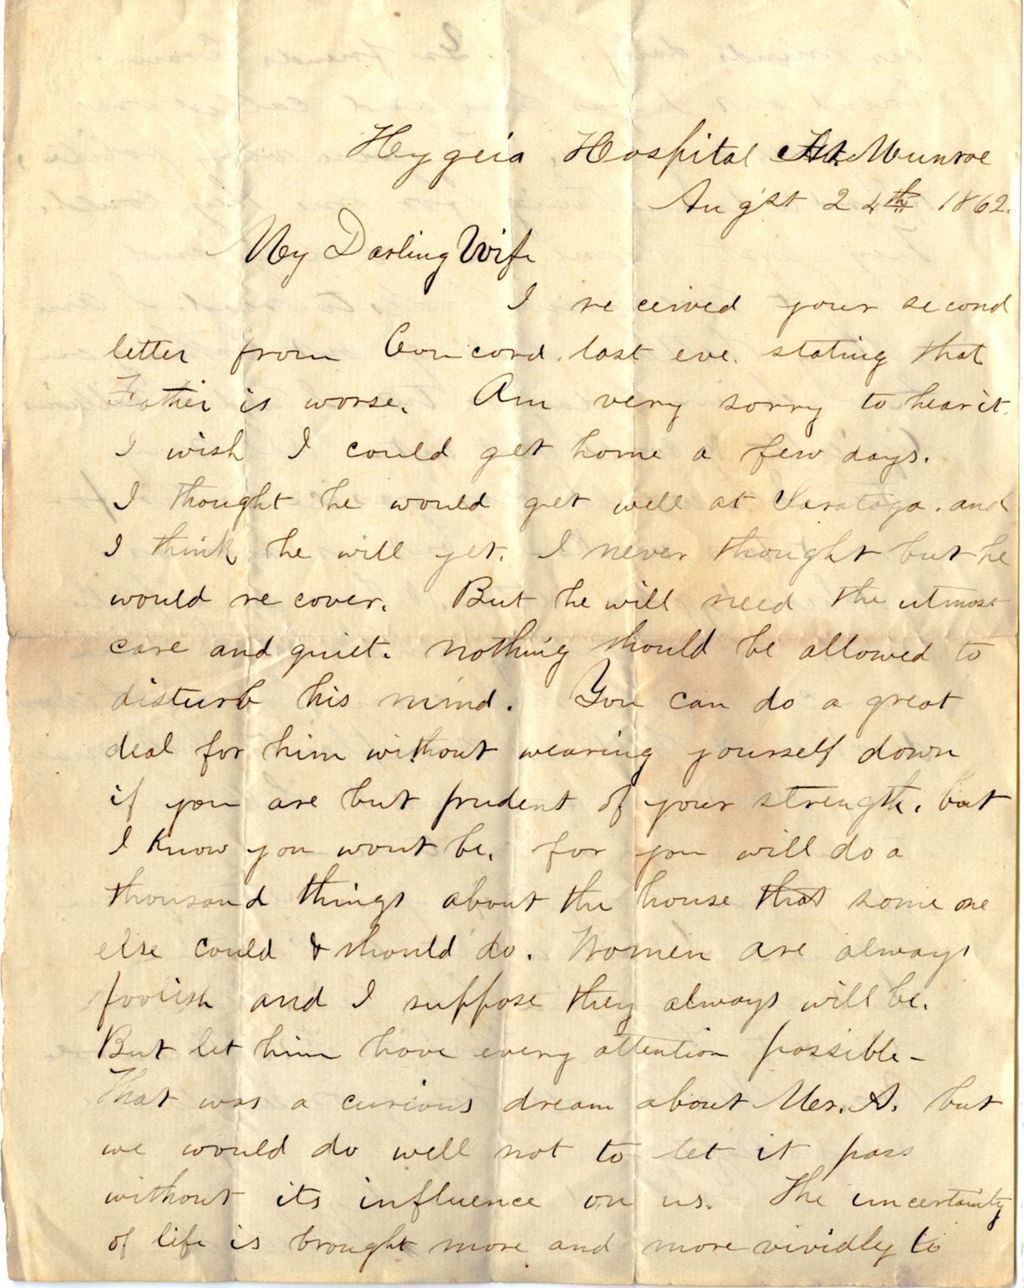 Hygeia Hospital Ft. Munroe
Aug'st 24th 1862.
My Darling Wife
I received your second
letter from Concord last eve. stating that
Father is worse. Am very sorry to hear it.
I wish I could get home a few days.
I thought he would get well at Saratoga. and
I think he will yet. I never thought but he
would recover. But he will need the utmost
care and quiet. nothing should be allowed to
disturb his mind. You can do a great
deal for him without wearing yourself down
if you are but prudent of your strength. but
I know you wont be. for you will do a
thousand things about the house that some one
else could & should do. Women are always
foolish and I suppose they always will be.
But let him have every attention possible -
That was a curious dream about Mr. A. but
we would do well not to let it pass
without its influence on us. The uncertainty
of life is brought more and more vividly to